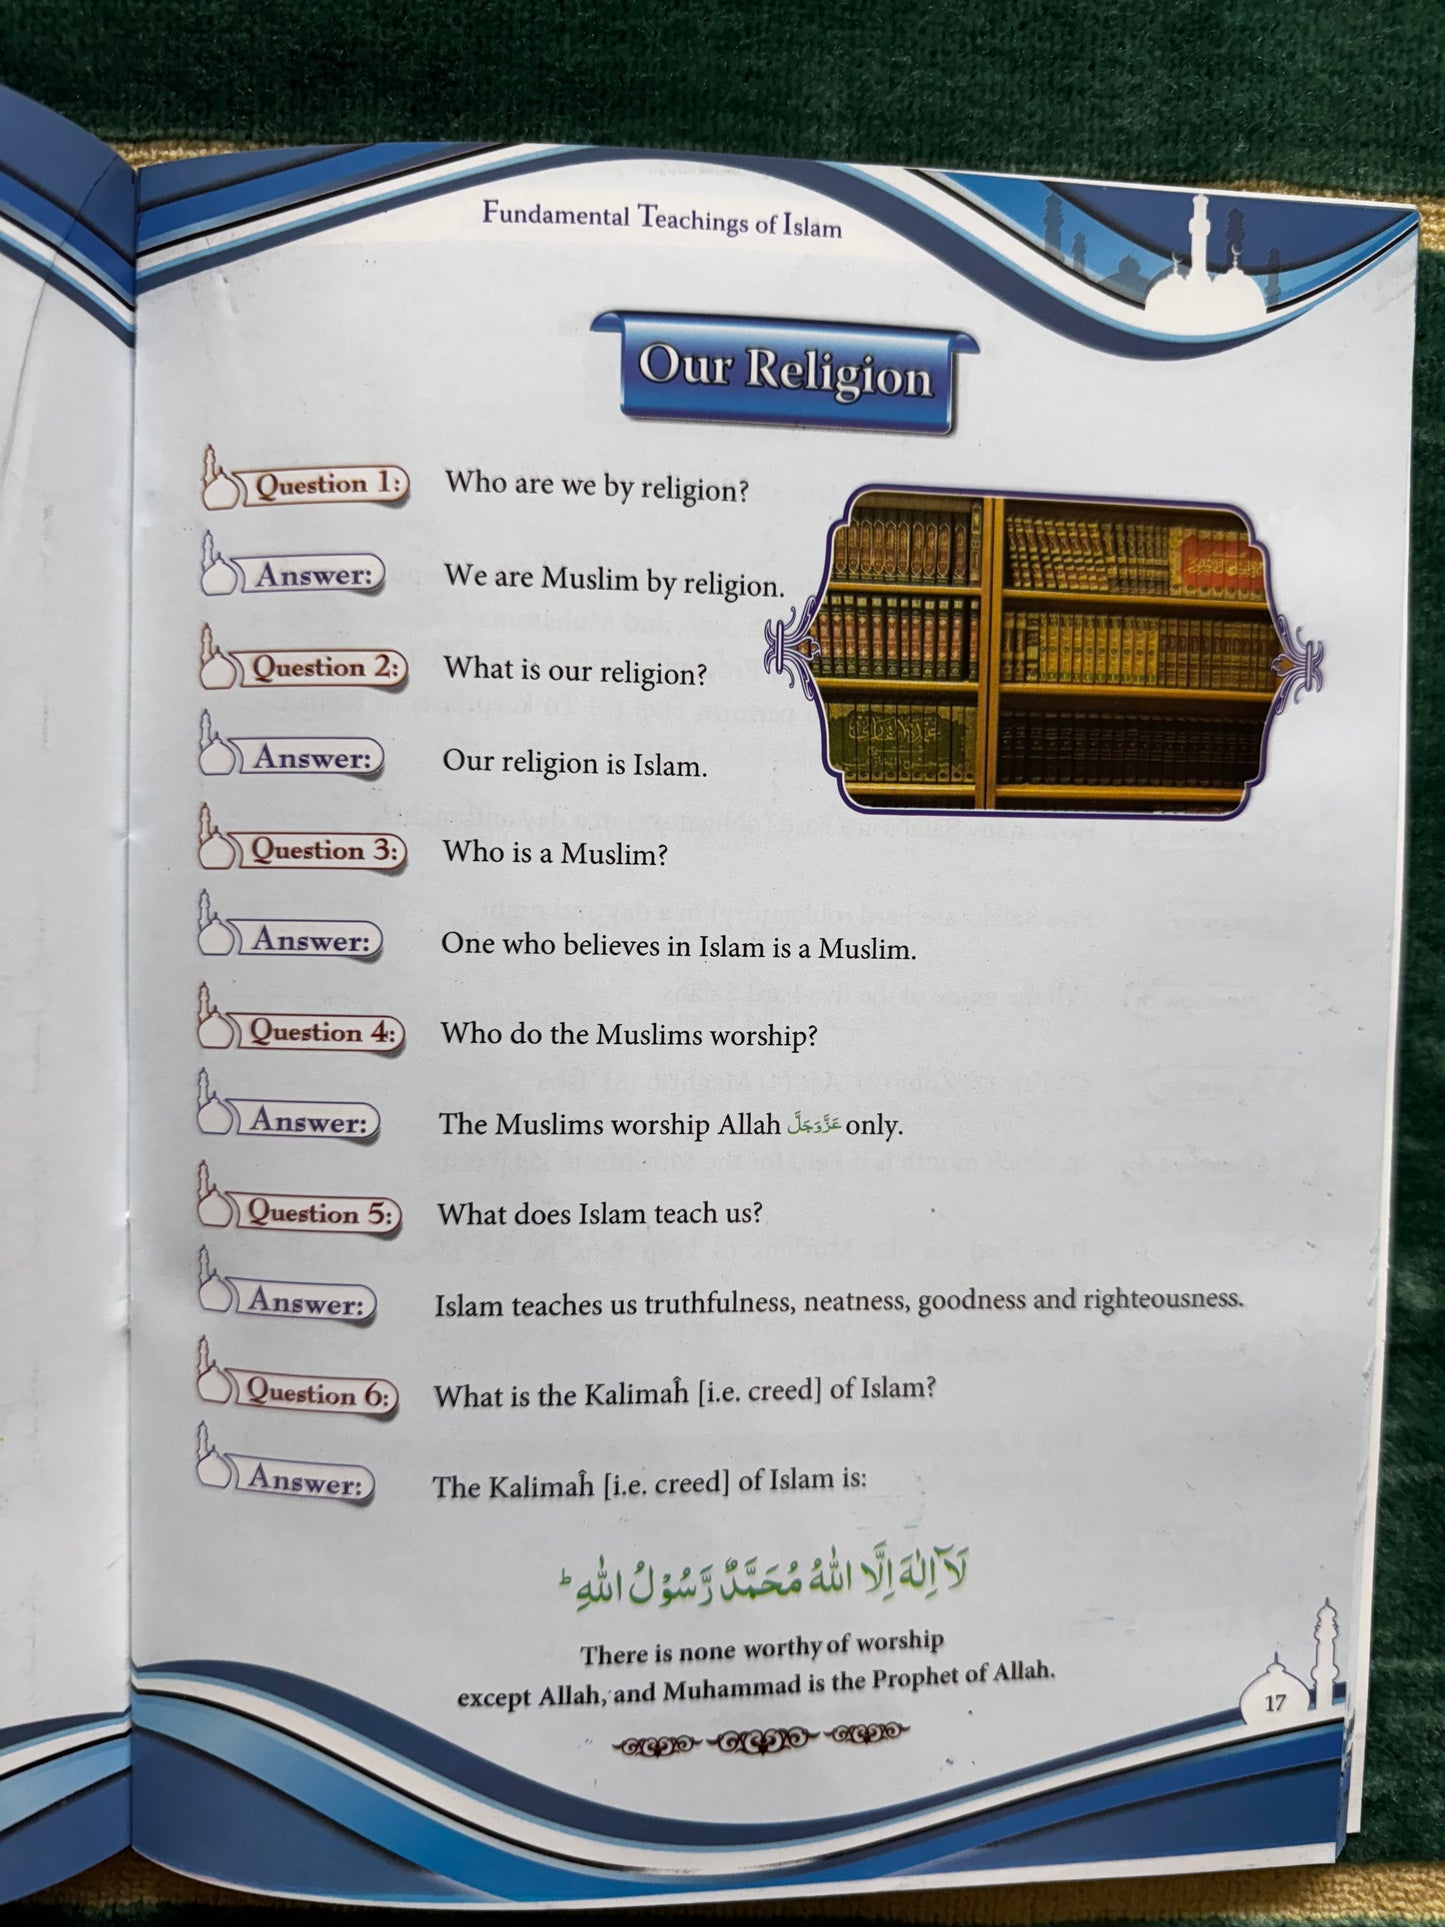 Fundamental Teachings of Islam
Our Religion
Question 1: Who are we by religion?
Answer: We are Muslim by religion.
Question 2: What is our religion?
Answer: Our religion is Islam.
Question 3: Who is a Muslim?
Answer: One who believes in Islam is a Muslim.
Question 4: Who do the Muslims worship?
Answer: The Muslims worship Allah عَزَّوَجَلَّ only.
Question 5: What does Islam teach us?
Answer: Islam teaches us truthfulness, neatness, goodness and righteousness.
Question 6: What is the Kalimaĥ [i.e. creed] of Islam?
Answer: The Kalimaĥ [i.e. creed] of Islam is:
لَآ اِلٰهَ اِلَّا اللّٰهُ مُحَمَّدٌ رَّسُوْلُ اللّٰهِ ؕ
There is none worthy of worship
except Allah, and Muhammad is the Prophet of Allah.
17